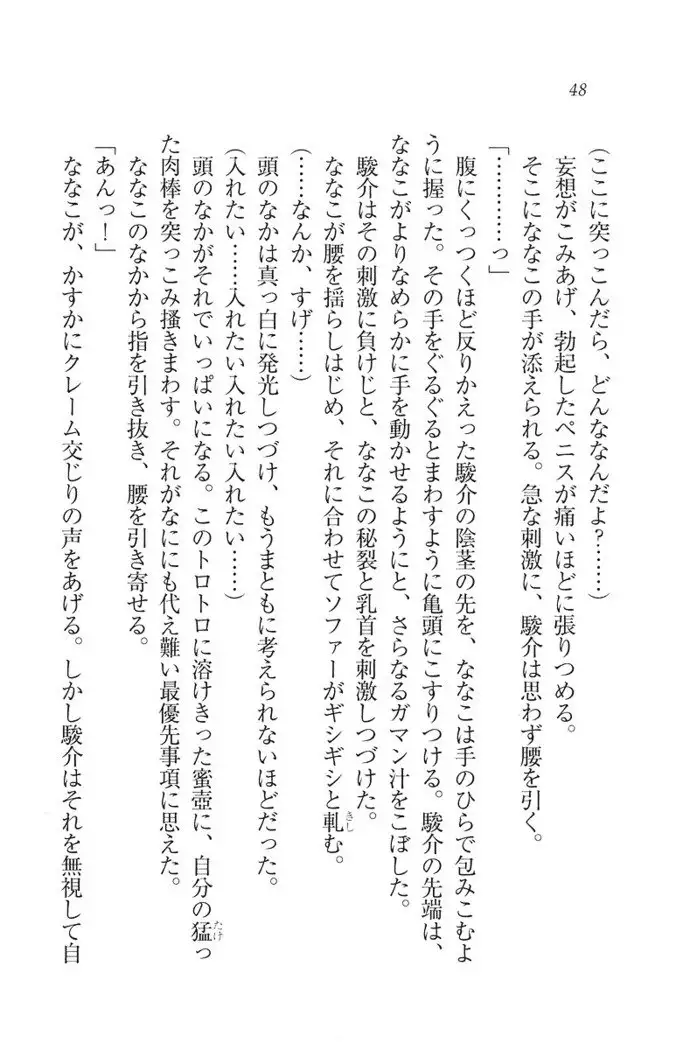 48
（ここに突っこんだら、どんななんだよ？……）
妄想がこみあげ、勃起したペニスが痛いほどに張りつめる。
そこにななこの手が添えられる。急な刺激に、駿介は思わず腰を引く。
「…………っ」
腹にくっつくほど反りかえった駿介の陰茎の先を、ななこは手のひらで包みこむよ
うに握った。その手をぐるぐるとまわすように亀頭にこすりつける。駿介の先端は、
ななこがよりなめらかに手を動かせるようにと、さらなるガマン汁をこぼした。
駿介はその刺激に負けじと、ななこの秘裂と乳首を刺激しつづけた。
ななこが腰を揺らしはじめ、それに合わせてソファーがギシギシと軋きしむ。
（……なんか、すげ……）
頭のなかは真っ白に発光しつづけ、もうまともに考えられないほどだった。
（入れたい……入れたい入れたい入れたい……）
頭のなかがそれでいっぱいになる。このトロトロに溶けきった蜜壺に、自分の猛たけっ
た肉棒を突っこみ掻きまわす。それがなににも代え難い最優先事項に思えた。
ななこのなかから指を引き抜き、腰を引き寄せる。
「あんっ！」
ななこが、かすかにクレーム交じりの声をあげる。しかし駿介はそれを無視して自